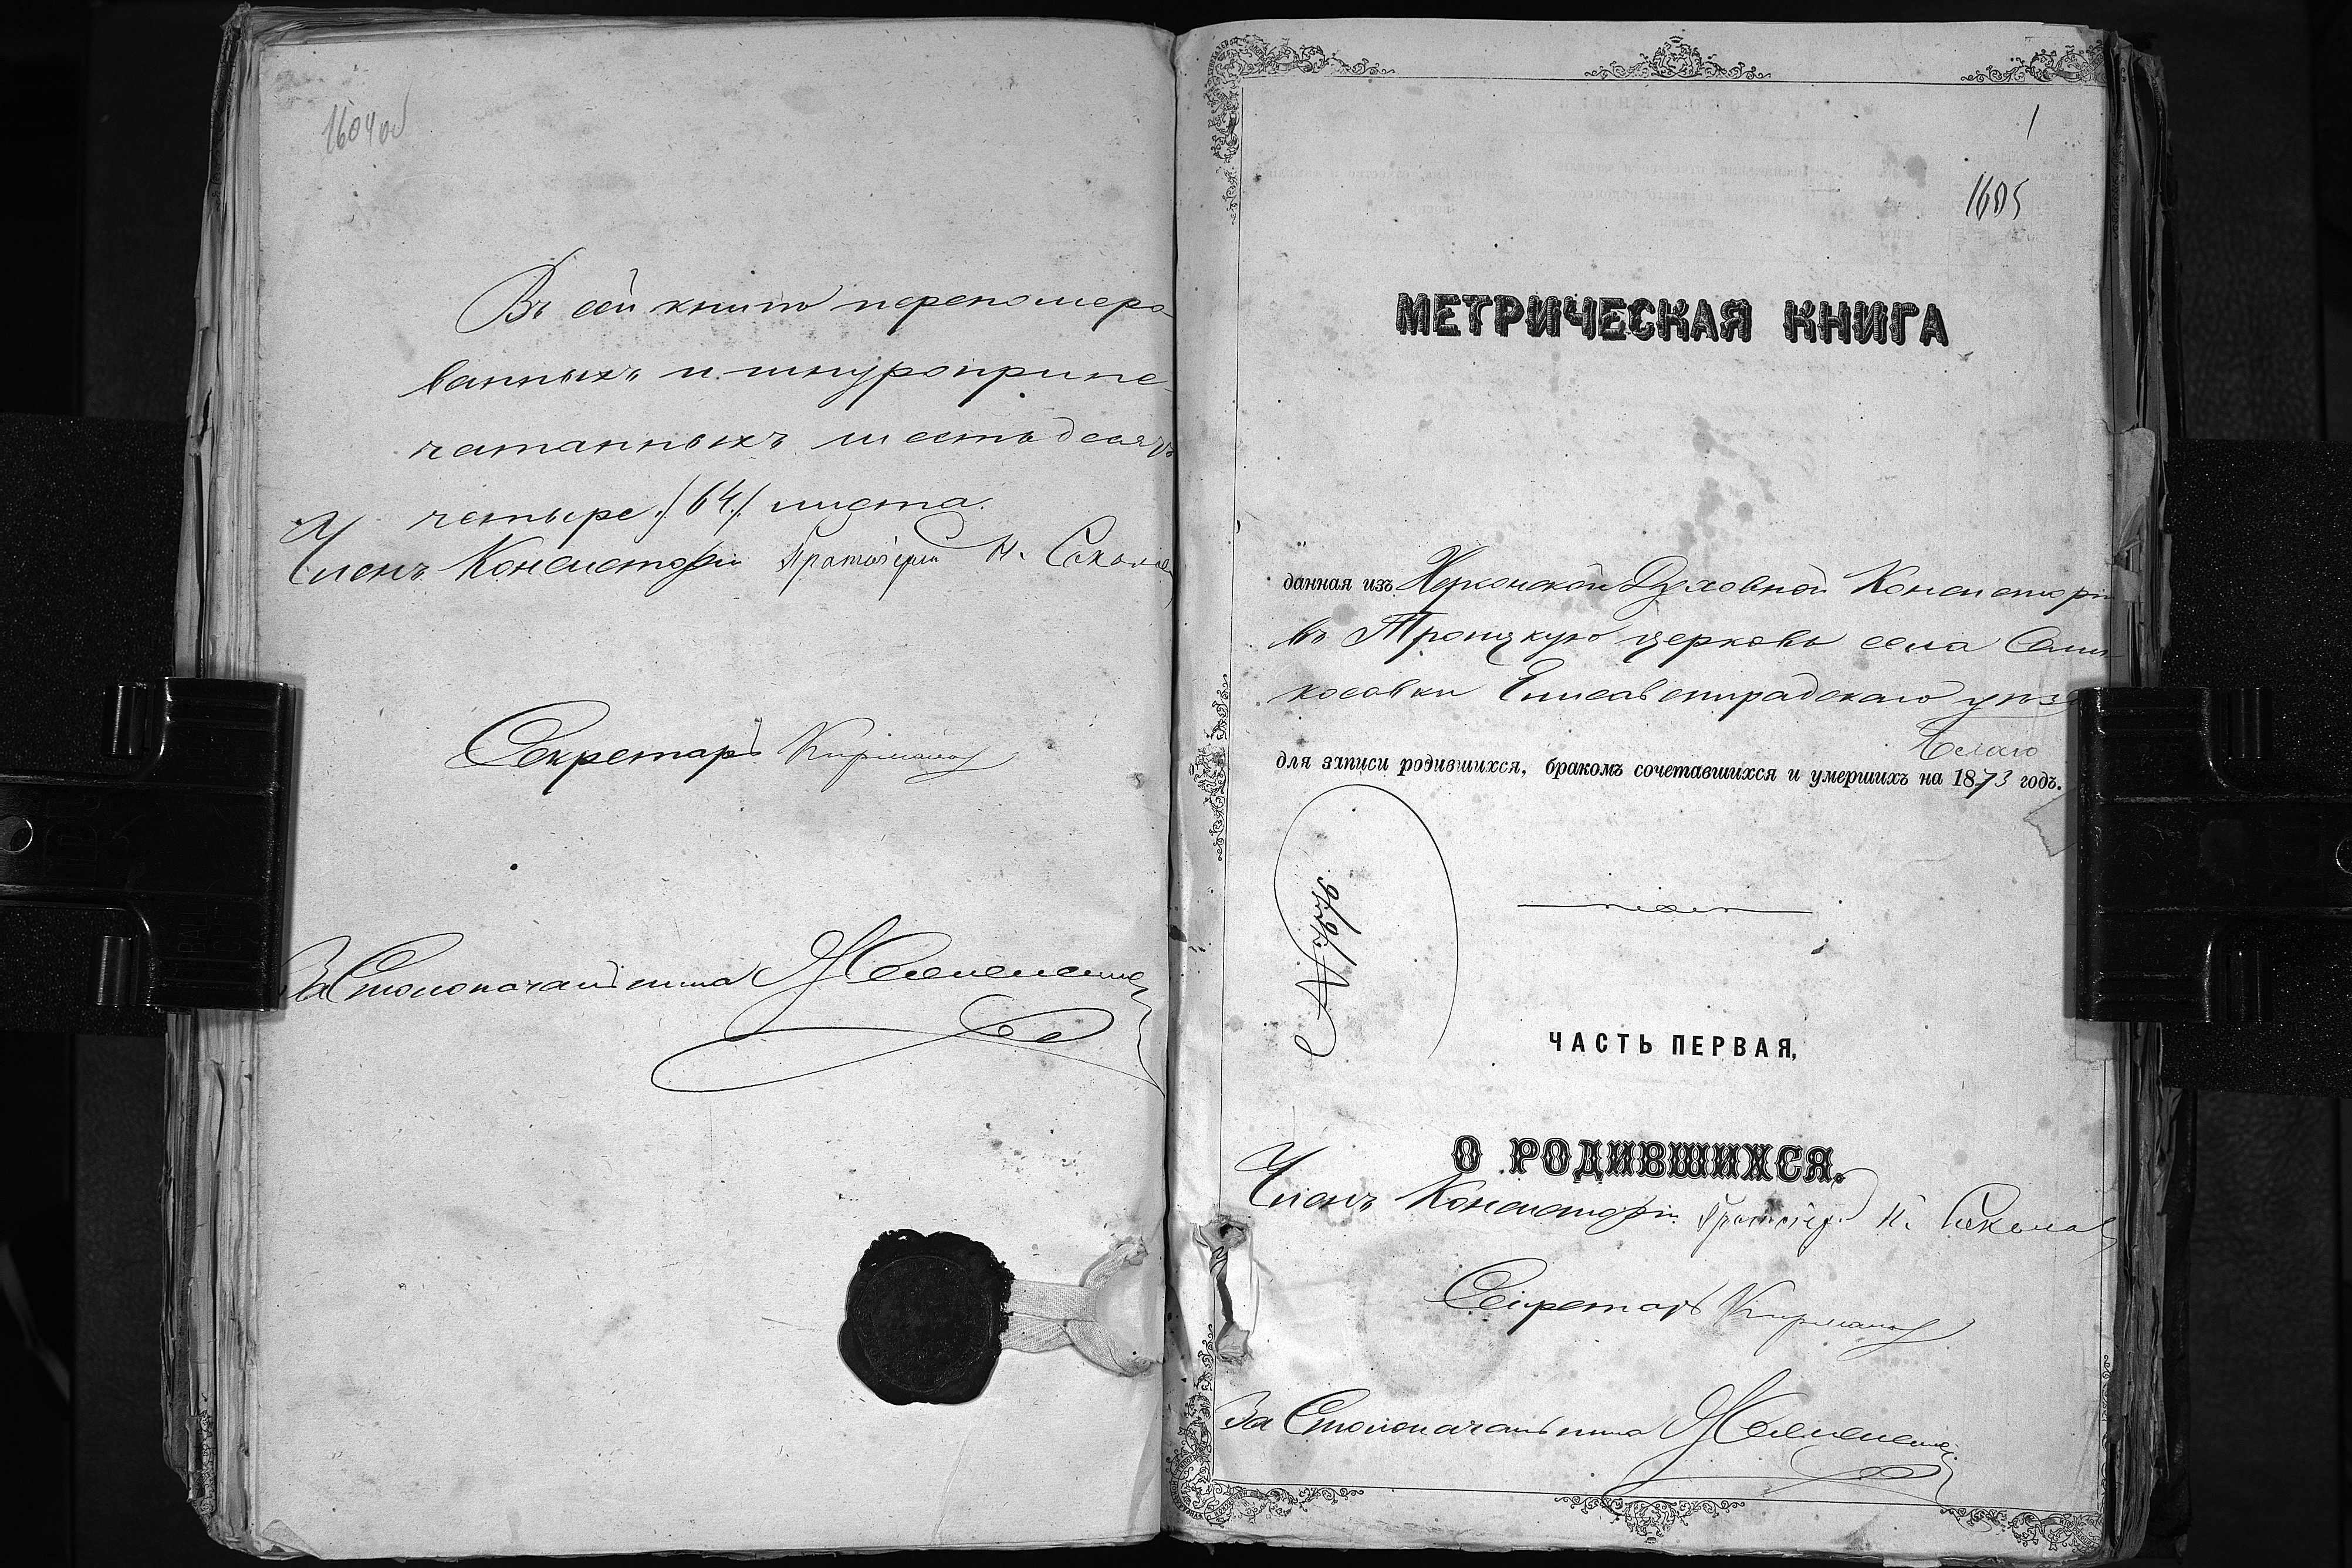 1604 об
Въ сей книгѣ перенумеро-
ванныхъ и шнуроприпе-
чатанныхъ шестьдесятъ
четыре /64/ листа.
Членъ Консисторіи Протоіерей Н. Соколовъ
Секретарь
За Столоначальника
1
1605
МЕТРИЧЕСКАЯ КНИГА
данная изъ Херсонской Духовной Консисторіи
въ Троицкую церковь села
Елисаветградскаго уѣз
для записи родившихся, бракомъ сочетавшихся и умершихъ на 1873 годъ.
ЧАСТЬ ПЕРВАЯ,
О РОДИВШИХСЯ.
Членъ Консисторіи Протоіерей Н. Соколовъ
Секретарь
За Столоначальника